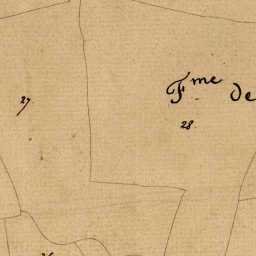 Fme De
27
28